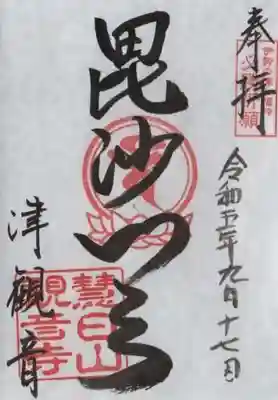 奉拝
令和五年九月十七日
毘沙门天
津觀音
慧日山
観音寺